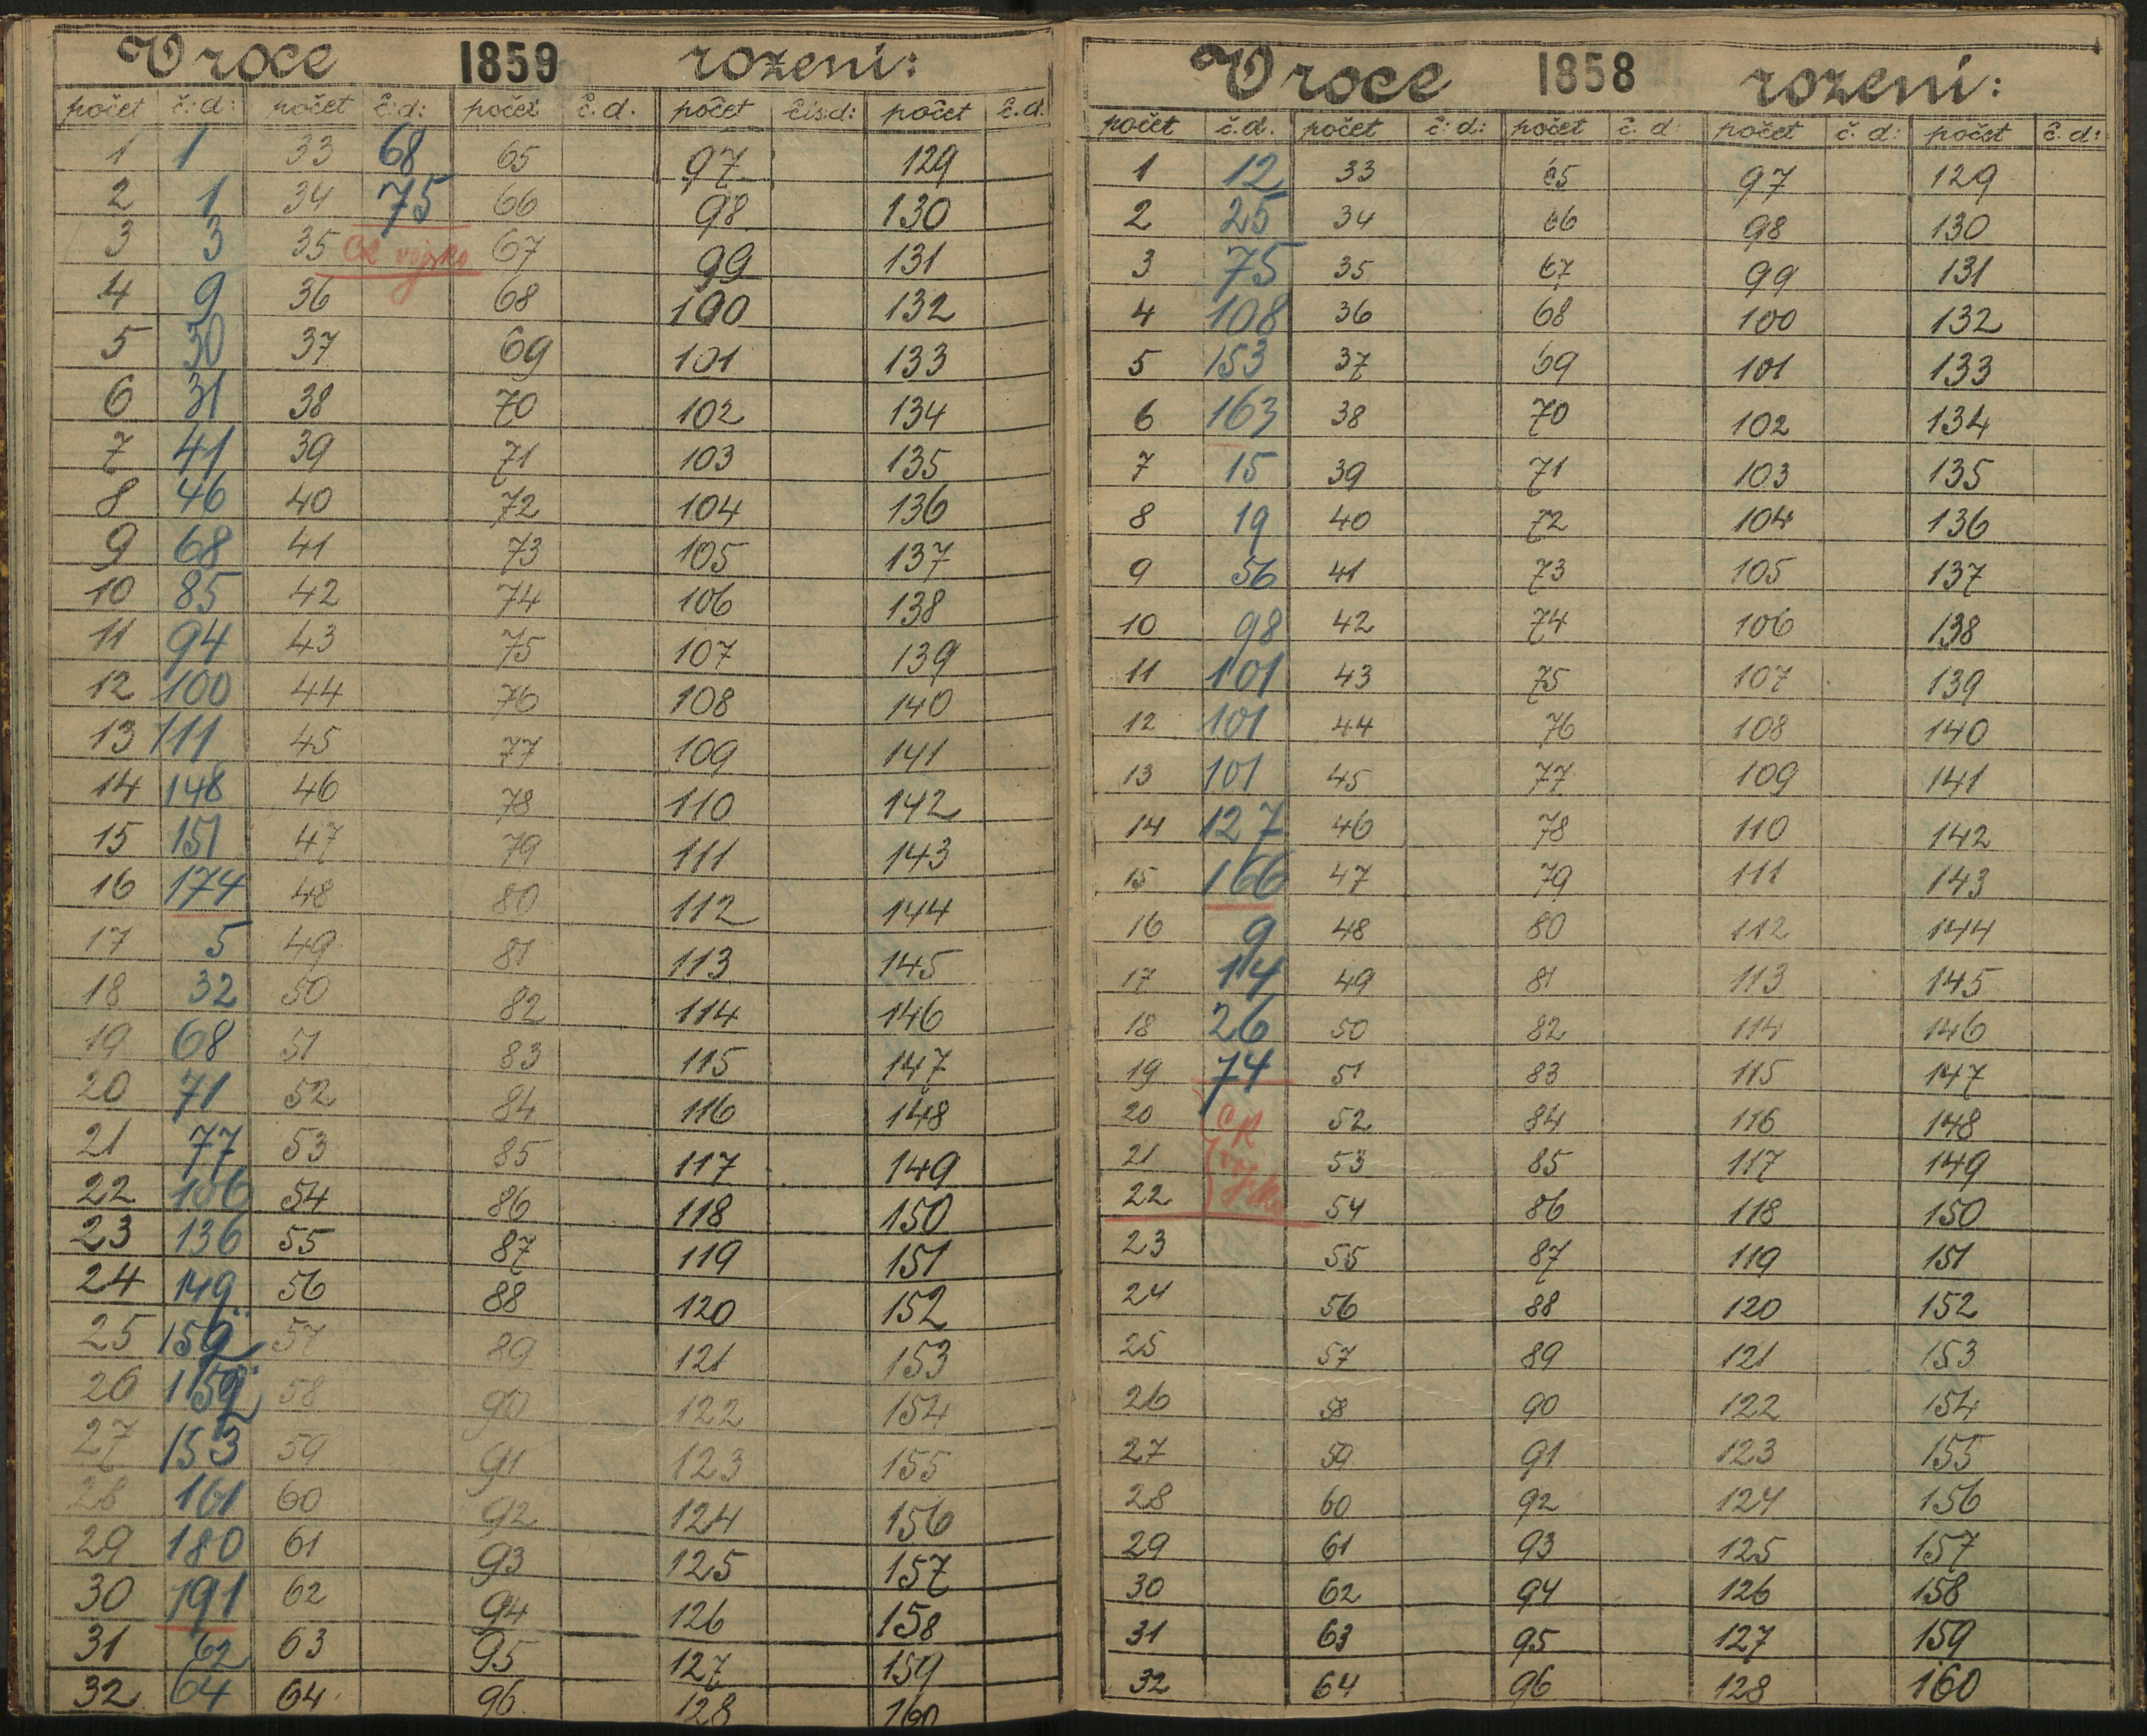 V roce 1859 rození:
počet č:d: počet č:d: počet č.d. počet čís.d: počet č.d.
1 1 33 68 65 97 129
2 1 34 75 66 98 130
3 3 35 67 99 131
4 9 36 68 100 132
5 30 37 69 101 133
6 31 38 70 102 134
7 41 39 71 103 135
8 46 40 72 104 136
9 68 41 73 105 137
10 85 42 74 106 138
11 94 43 75 107 139
12 100 44 76 108 140
13 111 45 77 109 141
14 148 46 78 110 142
15 151 47 79 111 143
16 174 48 80 112 144
17 5 49 81 113 145
18 32 50 82 114 146
19 68 51 83 115 147
20 71 52 84 116 148
21 77 53 85 117 149
22 106 54 86 118 150
23 136 55 87 119 151
24 149 56 88 120 152
25 57 89 121 153
26 58 90 122 154
27 153 59 91 123 155
28 161 60 92 124 156
29 180 61 93 125 157
30 191 62 94 126 158
31 62 63 95 127 159
32 64 64 96 128 160
V roce 1858 rození:
počet č.d. počet č:d: počet č.d: počet č.d: počet č.d:
1 12 33 65 97 129
2 25 34 66 98 130
3 75 35 67 99 131
4 108 36 68 100 132
5 153 37 69 101 133
6 163 38 70 102 134
7 15 39 71 103 135
8 19 40 72 104 136
9 56 41 73 105 137
10 98 42 74 106 138
11 101 43 75 107 139
12 101 44 76 108 140
13 101 45 77 109 141
14 127 46 78 110 142
15 166 47 79 111 143
16 9 48 80 112 144
17 14 49 81 113 145
18 26 50 82 114 146
19 74 51 83 115 147
20 52 84 116 148
21 53 85 117 149
22 54 86 118 150
23 55 87 119 151
24 56 88 120 152
25 57 89 121 153
26 58 90 122 154
27 59 91 123 155
28 60 92 124 156
29 61 93 125 157
30 62 94 126 158
31 63 95 127 159
32 64 96 128 160